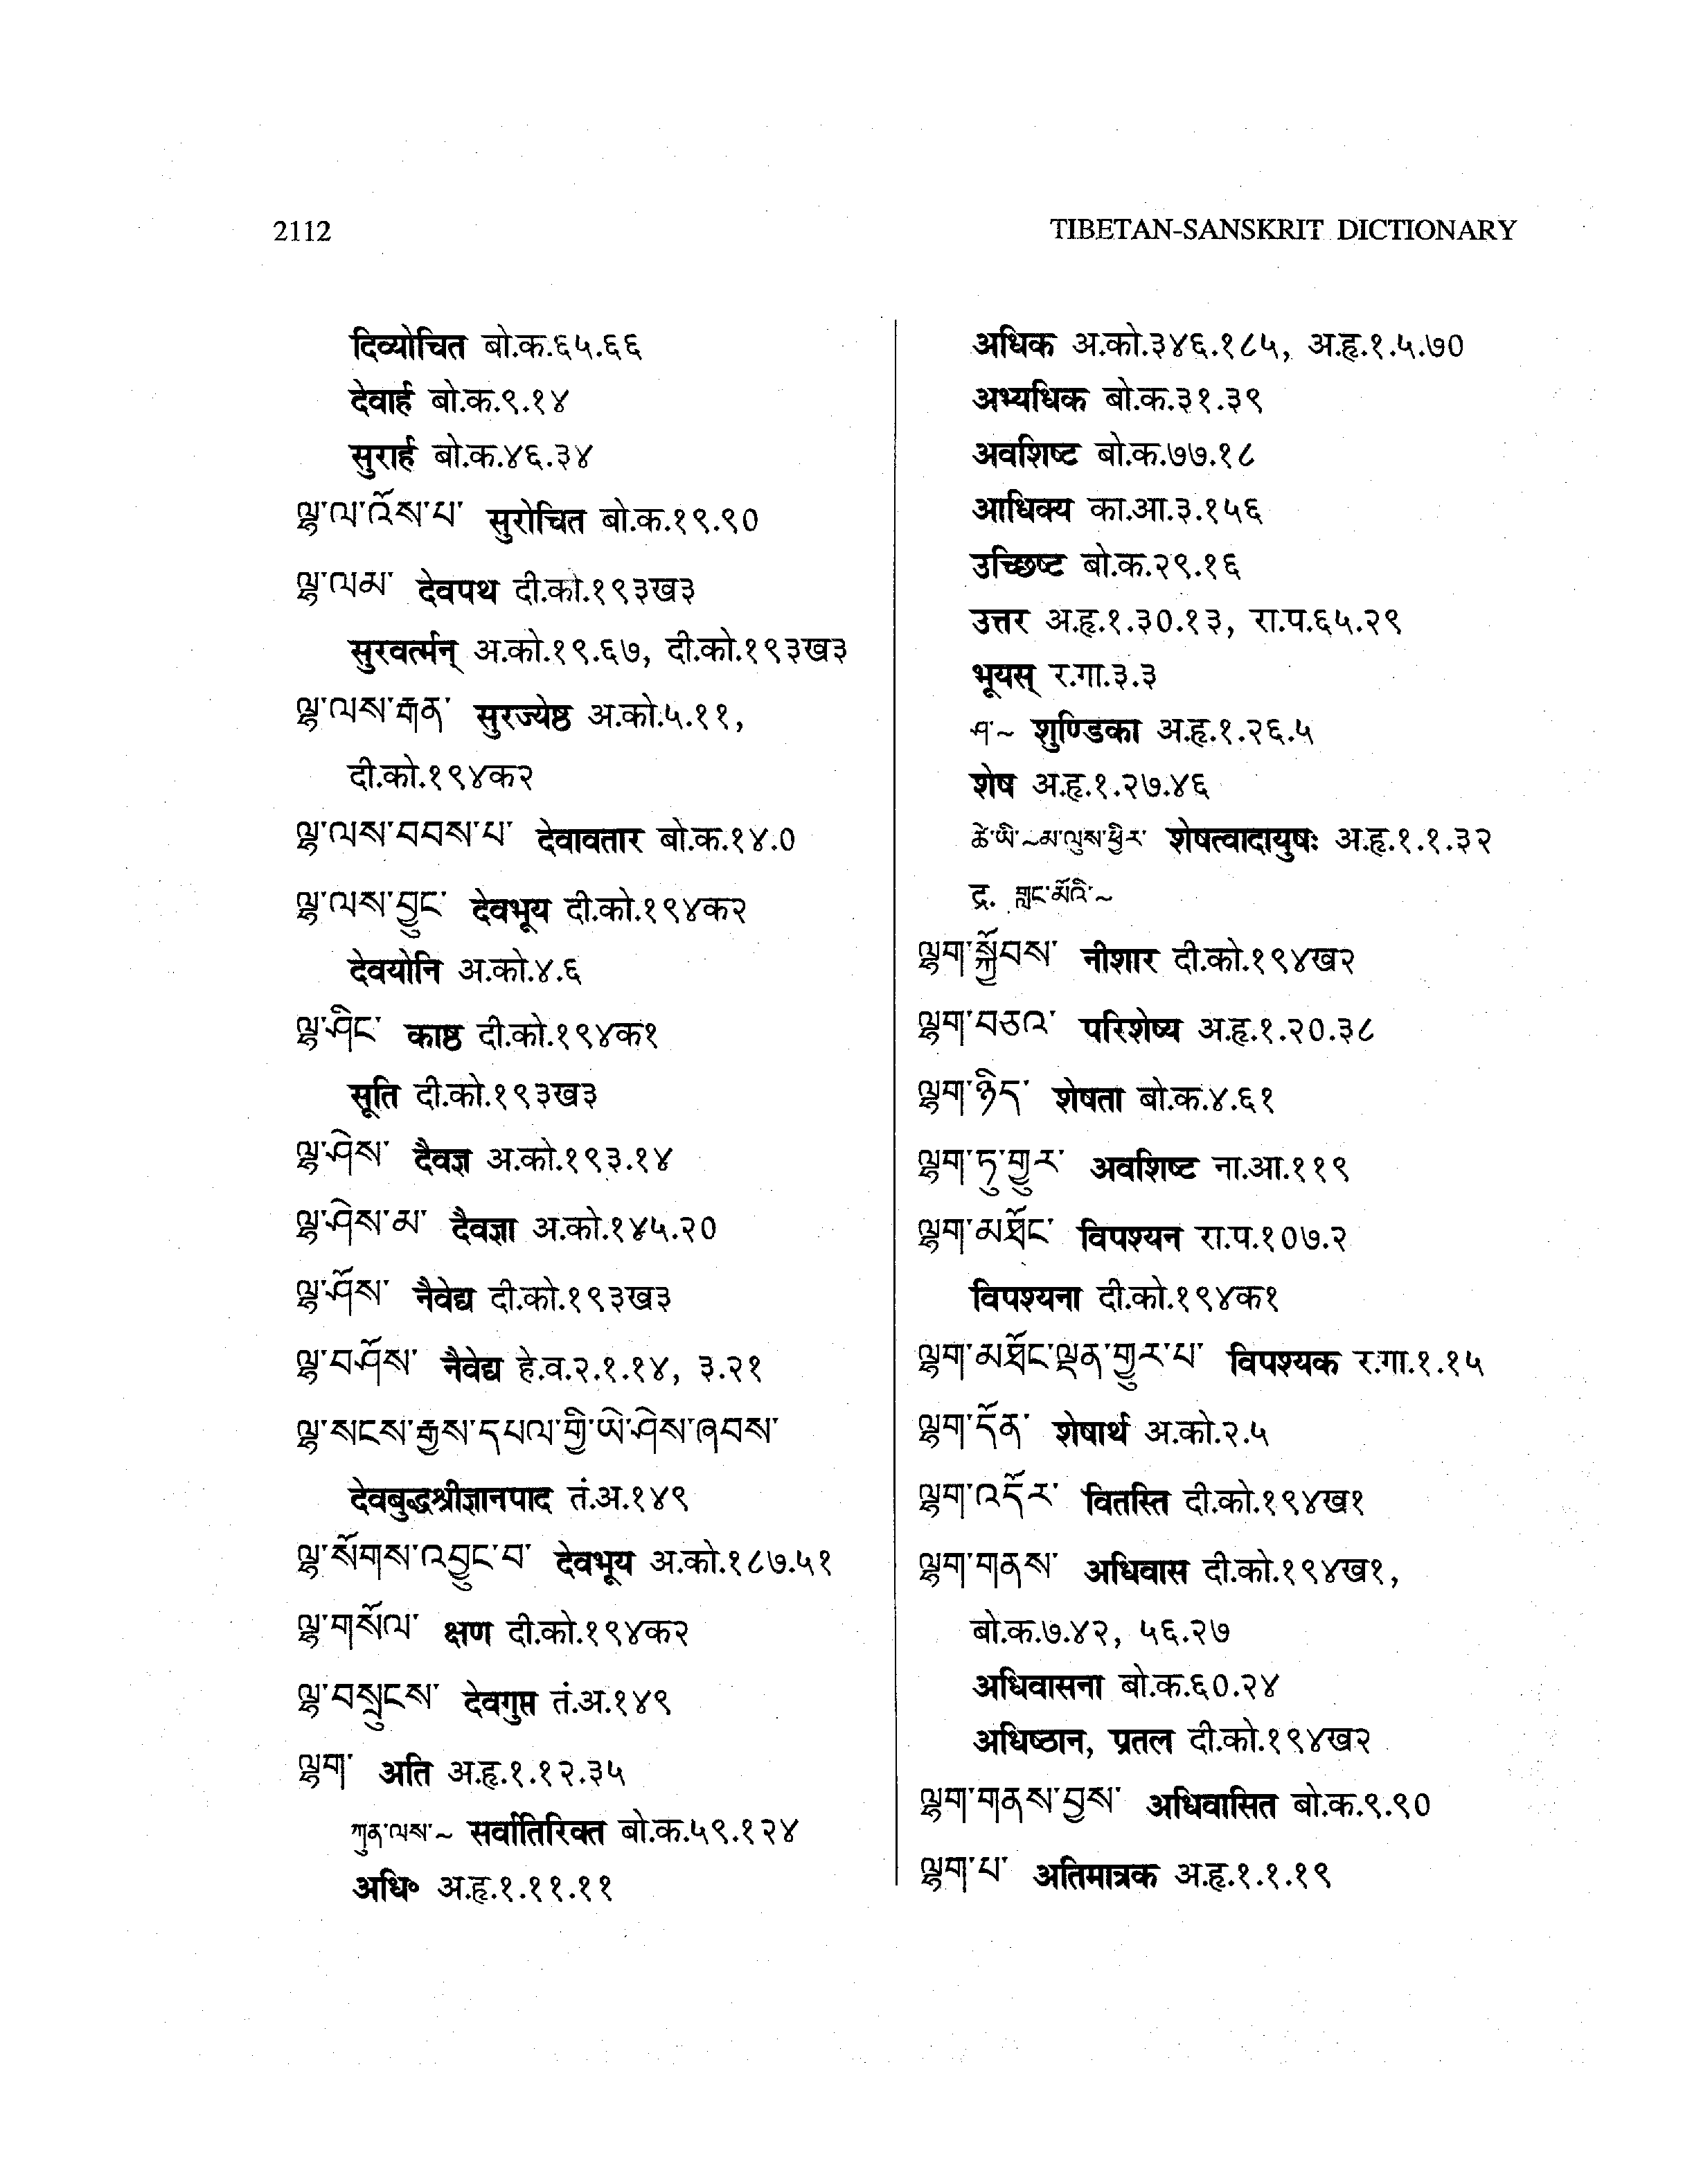 2112
TIBETAN-SANSKRIT DICTIONARY
दिव्योचित बो.क.६५.६६
देवार्ह बो.क.९.१४
सुरार्ह बो.क.४६.३४
ལྷ་ལ་འོས་པ་ सुरोचित बो.क.१९.९०
ལྷ་ལམ་ देवपथ दी.को.१९३ख३
सुरवर्त्मन् अ.को.१९.६७, दी.को.१९३ख३
ལྷ་ལས་རྒན་ सुरज्येष्ठ अ.को.५.११,
दी.को.१९४क२
ལྷ་ལས་བབས་པ་ देवावतार बो.क.१४.०
ལྷ་ལས་བྱུང་ देवभूय दी.को.१९४क२
देवयोनि अ.को.४.६
ལྷ་ཤིང་ काष्ठ दी.को.१९४क१
सूति दी.को.१९३ख३
ལྷ་ཤེས་ दैवज्ञ अ.को.१९३.१४
ལྷ་ཤེས་མ་ दैवज्ञा अ.को.१४५.२०
ལྷ་ཤོས་ नैवेद्य दी.को.१९३ख३
ལྷ་བཤོས་ नैवेद्य हे.व.२.१.१४, ३.२१
ལྷ་སངས་རྒྱས་དཔལ་གྱི་ཡེ་ཤེས་ཞབས་
देवबुद्धश्रीज्ञानपाद तं.अ.१४९
ལྷ་སོགས་འབྱུང་བ་ देवभूय अ.को.१८७.५१
ལྷ་གསོལ་ क्षण दी.को.१९४क२
ལྷ་བསྲུངས་ देवगुप्त तं.अ.१४९
ལྷག་ अति अ.हृ.१.१२.३५
ཀུན་ལས་~ सर्वातिरिक्त बो.क.५९.१२४
अधि॰ अ.हृ.१.११.११
अधिक अ.को.३४६.१८५, अ.हृ.१.५.७०
अभ्यधिक बो.क.३१.३९
अवशिष्ट बो.क.७७.१८
आधिक्य का.आ.३.१५६
उच्छिष्ट बो.क.२९.१६
उत्तर अ.हृ.१.३०.१३, रा.प.६५.२९
भूयस् र.गा.३.३
ཤ་~ शुण्डिका अ.हृ.१.२६.५
शेष अ.हृ.१.२७.४६
ཚེ་ཡི་~མ་ལུས་ཕྱིར་ शेषत्वादायुषः अ.हृ.१.१.३२
द्र. གླང་མོའི་~
ལྷག་སྐྱོབས་ नीशार दी.को.१९४ख२
ལྷག་བཅའ་ परिशेष्य अ.हृ.१.२०.३८
ལྷག་ཉིད་ शेषता बो.क.४.६१
ལྷག་ཏུ་གྱུར་ अवशिष्ट ना.आ.११९
ལྷག་མཐོང་ विपश्यन रा.प.१०७.२
विपश्यना दी.को.१९४क१
ལྷག་མཐོང་ལྡན་གྱུར་པ་ विपश्यक र.गा.१.१५
ལྷག་དོན་ शेषार्थ अ.को.२.५
ལྷག་འདོར་ वितस्ति दी.को.१९४ख१
ལྷག་གནས་ अधिवास दी.को.१९४ख१,
बो.क.७.४२, ५६.२७
अधिवासना बो.क.६०.२४
अधिष्ठान, प्रतल दी.को.१९४ख२
ལྷག་གནས་བྱས་ अधिवासित बो.क.९.९०
ལྷག་པ་ अतिमात्रक अ.हृ.१.१.१९